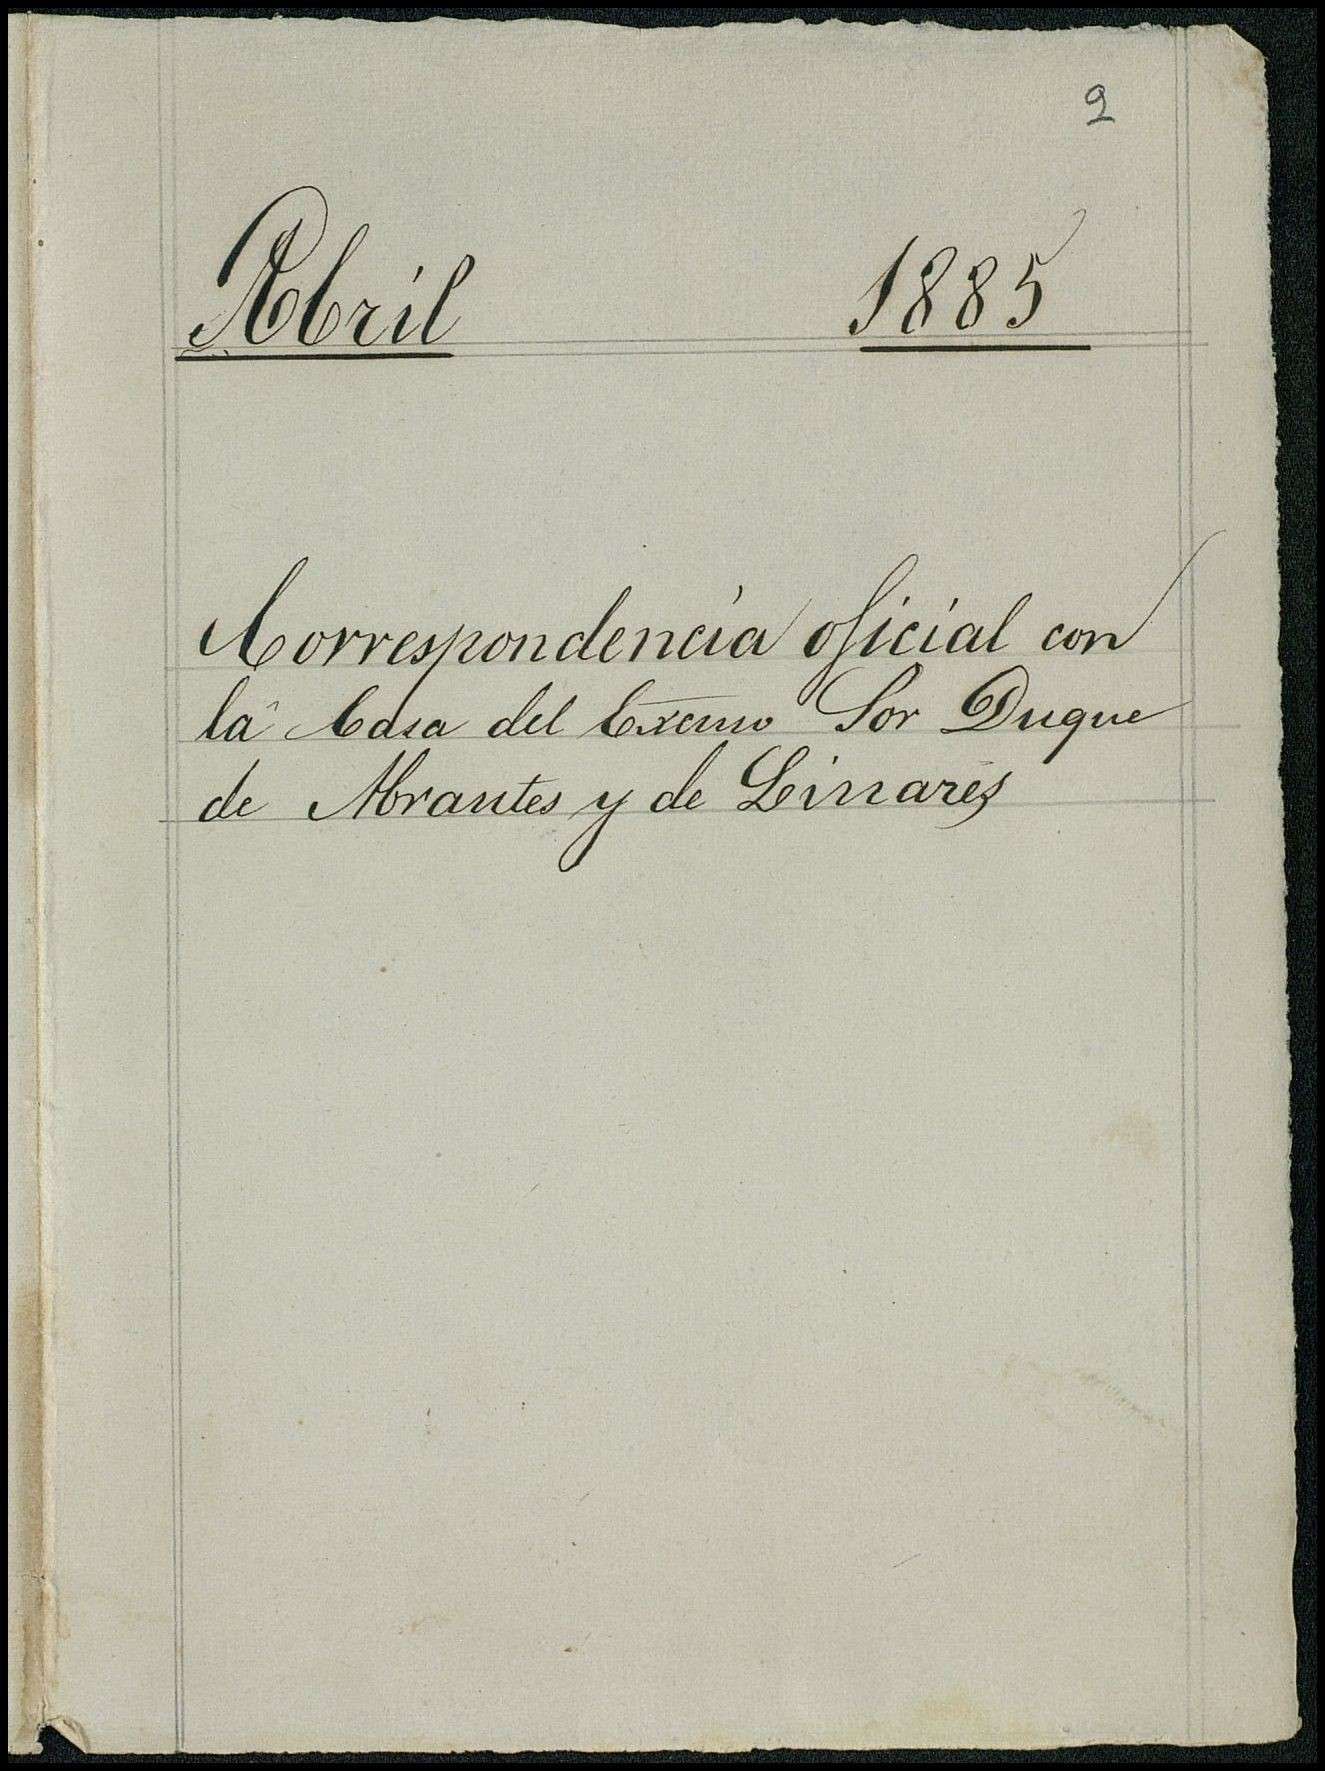 2
Abril 1885
Correspondencia oficial con
la Casa del Excmo Sor Duque
de Abrantes y de Linares